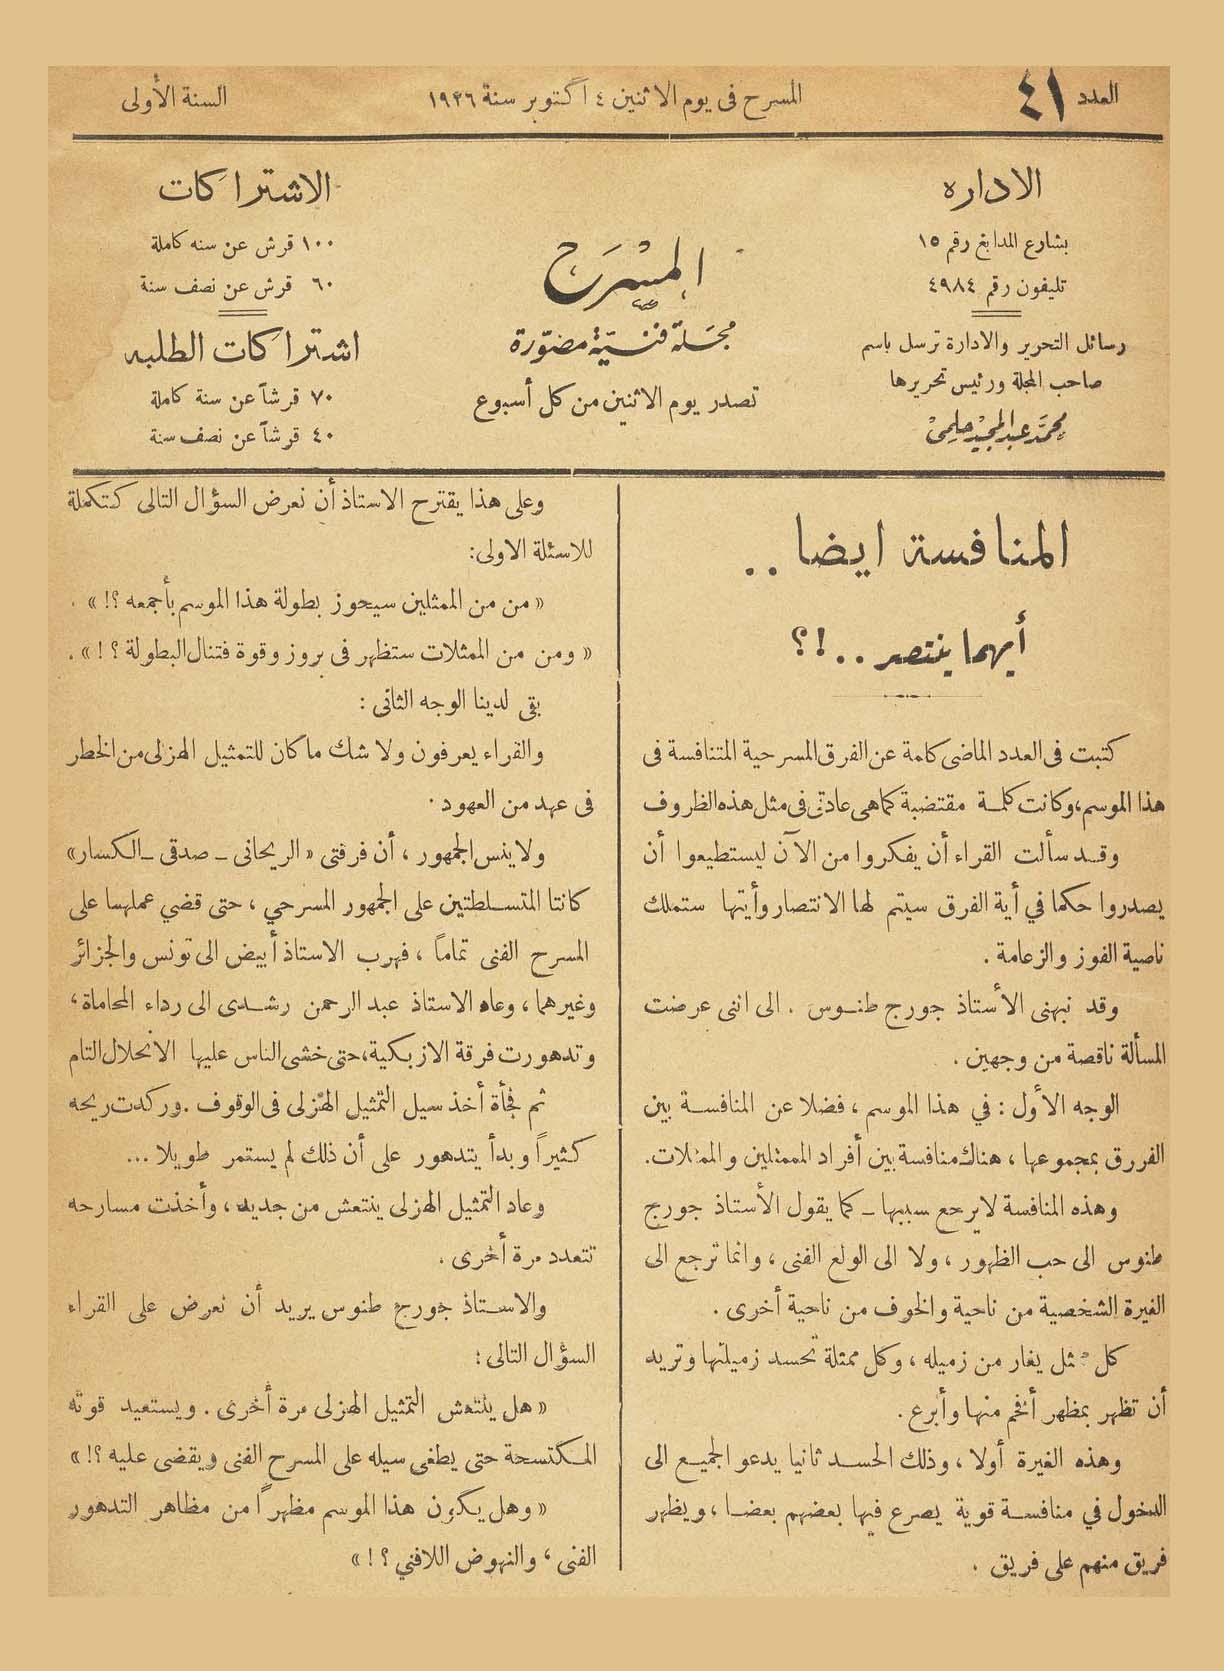 العدد ٤١
المسرح فى يوم الاثنين ٤ اكتوبر سنة ١٩٢٦
السنة الأولى
الادارة
بشارع المدابغ رقم ١٥
تليفون رقم ٤٩٨٤
رسائل التحرير والادارة ترسل باسم
صاحب المجلة ورئيس تحريرها
محمد عبد المجيد حلمى
المسرح
مجلة فنية مصورة
تصدر يوم الاثنين من كل أسبوع
الاشتراكات
١٠٠ قرش عن سنه كاملة
٦٠ قرش عن نصف سنة
اشتراكات الطلبه
٧٠ قرشاً عن سنة كاملة
٤٠ قرشاً عن نصف سنة
المنافسة ايضا . .
أيهما ينتصر . . !؟
كتبت فى العدد الماضى كلمة عن الفرق المسرحية المتنافسة فى
هذا الموسم، وكانت كلمة مقتضبة كما هى عادتى فى مثل هذه الظروف
وقد سألت القراء أن يفكروا من الآن ليستطيعوا أن
يصدروا حكما في أية الفرق سيتم لها الانتصار وأيتها ستملك
ناصية الفوز والزعامة .
وقد نبهنى الأستاذ جورج طنوس . الى اننى عرضت
المسألة ناقصة من وجهين .
الوجه الأول : في هذا الموسم ، فضلا عن المنافسة بين
الفررق بمجموعها ، هناك منافسة بين أفراد الممثلين والممثلات.
وهذه المنافسة لا يرجع سببها ـ كما يقول الأستاذ جورج
طنوس الى حب الظهور ، ولا الى الولع الفنى ، وانما ترجع الى
الغيرة الشخصية من ناحية والخوف من ناحية أخرى .
كل ممثل يغار من زميله ، وكل ممثلة تحسد زميلتها وتريد
أن تظهر بمظهر أفخم منها وأبرع .
وهذه الغيرة أولا ، وذلك الحسد ثانيا يدعو الجميع الى
الدخول في منافسة قوية يصرع فيها بعضهم بعضا ، ويظهر
فريق منهم على فريق .
وعلى هذا يقترح الاستاذ أن نعرض السؤال التالى كتكملة
للاسئلة الاولى:
« من من الممثلين سيحوز بطولة هذا الموسم بأجمعه ؟! » .
« ومن من الممثلات ستظهر فى بروز وقوة فتنال البطولة ؟ ! » .
بقى لدينا الوجه الثانى :
والقراء يعرفون ولا شك ما كان للتمثيل الهزلى من الخطر
فى عهد من العهود .
ولا ينس الجمهور ، أن فرقتى « الريحانى ـ صدقى ـ الكسار »
كانتا المتسلطتين على الجمهور المسرحي ، حتى قضي عملهما على
المسرح الفنى تماماً ، فهرب الاستاذ أبيض الى تونس والجزائر
وغيرهما ، وعاد الاستاذ عبد الرحمن رشدى الى رداء المحاماة ،
وتدهورت فرقة الازبكية، حتى خشى الناس عليها الانحلال التام
ثم فجأة أخذ سيل التمثيل الهزلى فى الوقوف . وركدت ريحه
كثيراً وبدأ يتدهور على أن ذلك لم يستمر طويلا ...
وعاد التمثيل الهزلى ينتعش من جديد ، وأخذت مسارحه
تتعدد مرة أخرى .
والاستاذ جورج طنوس يريد أن نعرض على القراء
السؤال التالى :
« هل ينتعش التمثيل الهزلى مرة أخرى . ويستعيد قوته
المكتسحة حتى يطغى سيله على المسرح الفنى ويقضى عليه ؟! »
« وهل يكون هذا الموسم مظهراً من مظاهر التدهور
الفنى ، والنهوض اللافني ؟ ! »